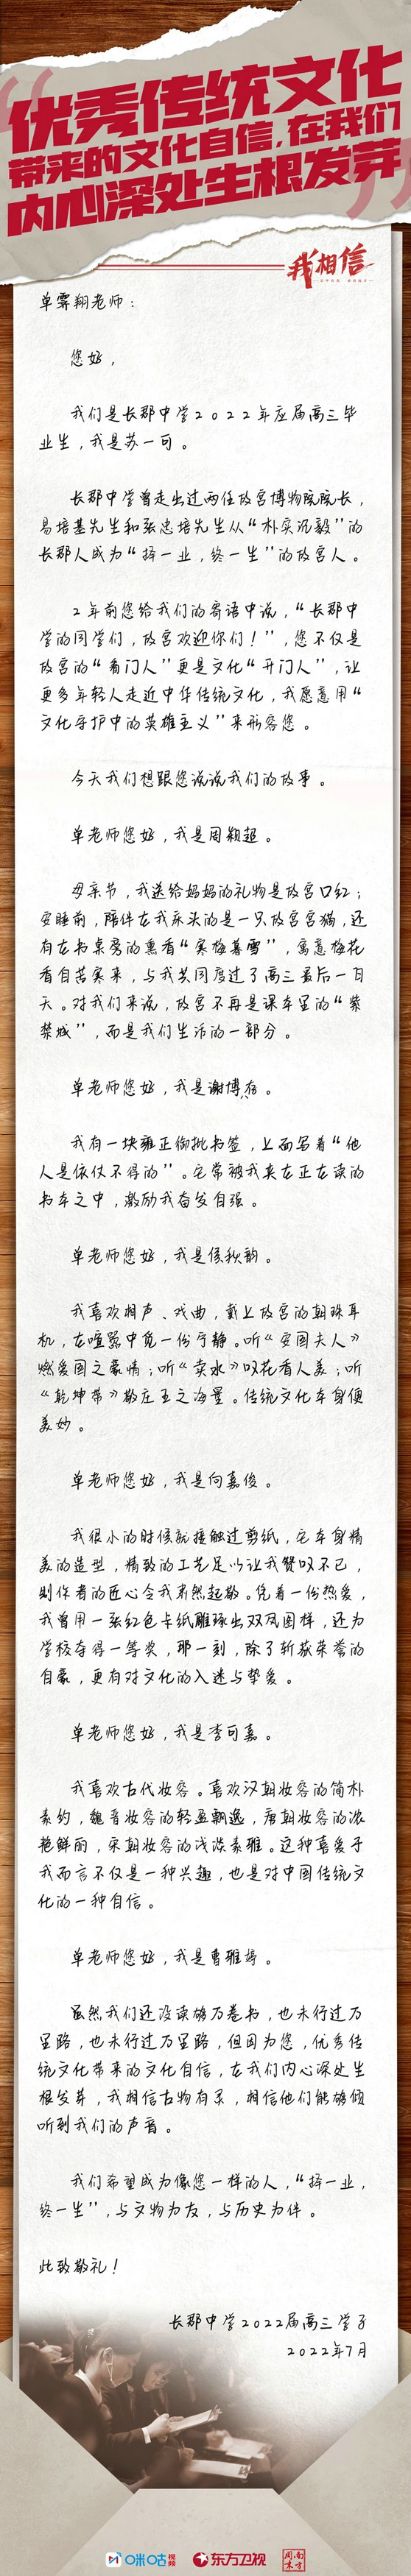 优秀传统文化
带来的文化自信,在我们
内心深处生根发芽
我相信
单霁翔老师：
您好，
我们是长郡中学2022年应届高三毕
业生，我是苏一可。
长郡中学曾走出过两任故宫博物院院长，
易培基先生和张忠培先生从“朴实沉毅”的
长郡人成为“择一业，终一生”的故宫人。
2年前您给我们的寄语中说，“长郡中
学的同学们，故宫欢迎你们！”，您不仅是
故宫的“看门人”更是文化“开门人”，让
更多年轻人走近中华传统文化，我愿意用“
文化守护中的英雄主义”来形容您。
今天我们想跟您说说我们的故事。
单老师您好，我是周颖超。
母亲节，我送给妈妈的礼物是故宫口红；
安睡前，陪伴在我床头的是一只故宫宫猫，还
有在书桌旁的熏香“寒梅暮雪”，寓意梅花
香自苦寒来，与我共同度过了高三最后一百
天。对我们来说，故宫不再是课本里的“紫
禁城”，而是我们生活的一部分。
单老师您好，我是谢博存。
我有一块雍正御批书签，上面写着“他
人是依仗不得的”。它常被我夹在正在读的
书本之中，激励我奋发自强。
单老师您好，我是侯秋韵。
我喜欢相声、戏曲，戴上故宫的朝珠耳
机，在喧嚣中觅一份宁静。听《安国夫人》
燃爱国之豪情；听《卖水》叹花香人美；听
《乾坤带》敬庄王之海量。传统文化本身便
美妙。
单老师您好，我是向嘉俊。
我很小的时候就接触过剪纸，它本身精
美的造型，精致的工艺足以让我赞叹不已，
创作者的匠心令我肃然起敬。凭着一份热爱，
我曾用一张红色卡纸雕琢出双凤图样，还为
学校夺得一等奖，那一刻，除了斩获荣誉的
自豪，更有对文化的入迷与挚爱。
单老师您好，我是李可嘉。
我喜欢古代妆容。喜欢汉朝妆容的简朴
素约，魏晋妆容的轻盈飘逸，唐朝妆容的浓
艳鲜丽，宋朝妆容的浅淡素雅。这种喜爱于
我而言不仅是一种兴趣，也是对中国传统文
化的一种自信。
单老师您好，我是曹雅婷。
虽然我们还没读够万卷书，也未行过万
里路，也未行过万里路，但因为您，优秀传
统文化带来的文化自信，在我们内心深处生
根发芽，我相信古物有灵，相信他们能够倾
听到我们的声音。
我们希望成为像您一样的人，“择一业，
终一生”，与文物为友，与历史为伴。
此致敬礼！
长郡中学2022届高三学子
2022年7月
咪咕视频 东方卫视 南方周末